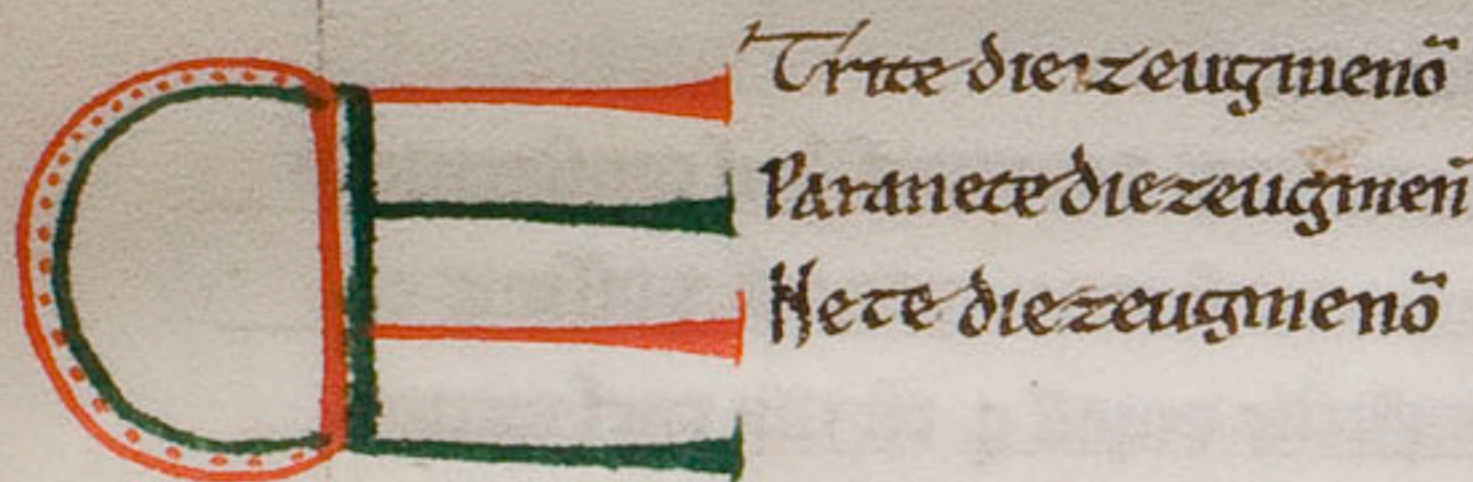 Trite diezeugmenō
Paranete diezeugmen̄
Nete diezeugmenō